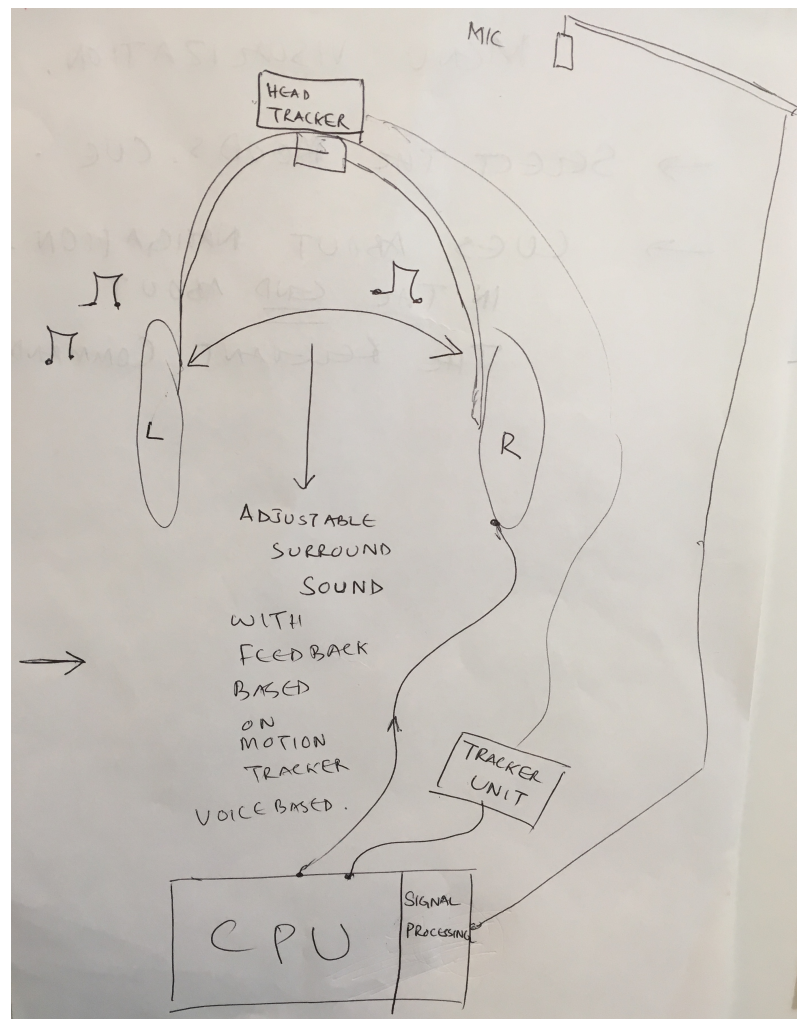 MIC
HEAD
TRACKER
L
R
ADJUSTABLE
SURROUND
SOUND
WITH
FEEDBACK
BASED
ON
MOTION
TRACKER
VOICE BASED.
TRACKER
UNIT
CPU
SIGNAL
PROCESSING